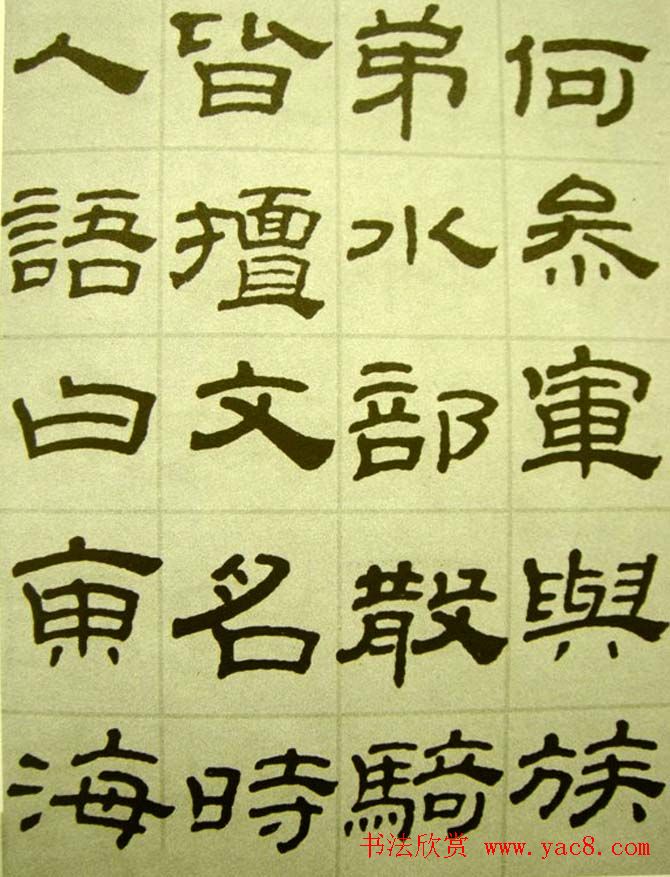 何參軍與族
弟水部散騎
皆擅文名時
人語曰東海
书法欣赏 www.yac8.com